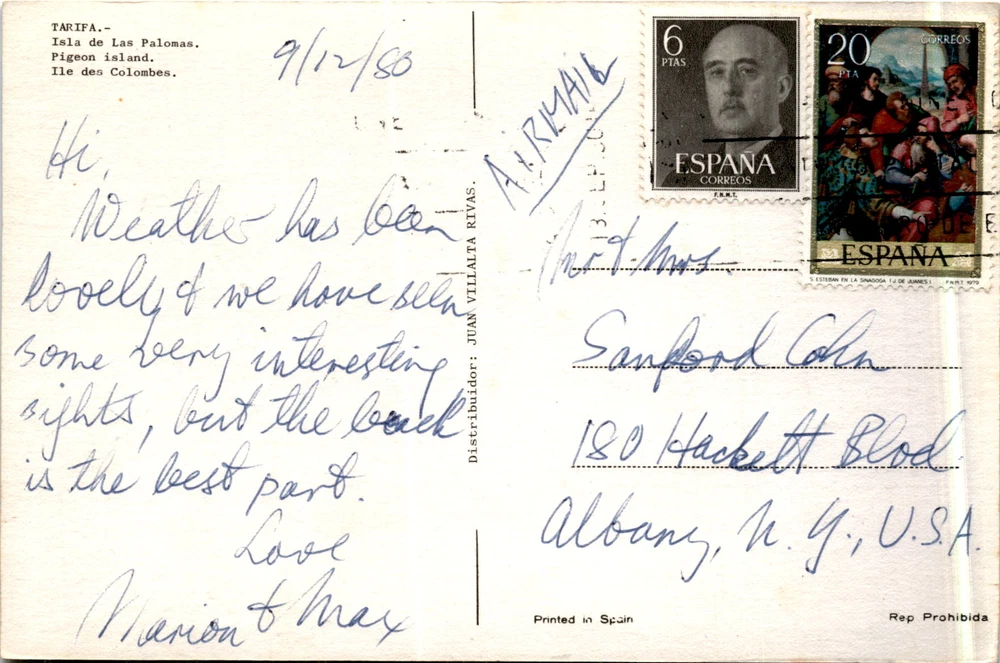 TARIFA.-
Isla de Las Palomas.
Pigeon island.
Ile des Colombes.
9/12/80
Hi,
Weather has been
lovely & we have seen
some very interesting
sights, but the beach
is the best part.
Love
Marion & Max
Distribuidor: JUAN VILLALTA RIVAS.
AIRMAIL
6
PTAS
ESPAÑA
CORREOS
F.N.M.T.
20
PTA
CORREOS
ESPAÑA
S. ESTEBAN EN LA SINAGOGA (J. DE JUANES) F.N.M.T. 1979
Mr & Mrs
Sanford Cohn
180 Hackett Blvd
Albany, N.Y., U.S.A.
Printed in Spain
Rep Prohibida